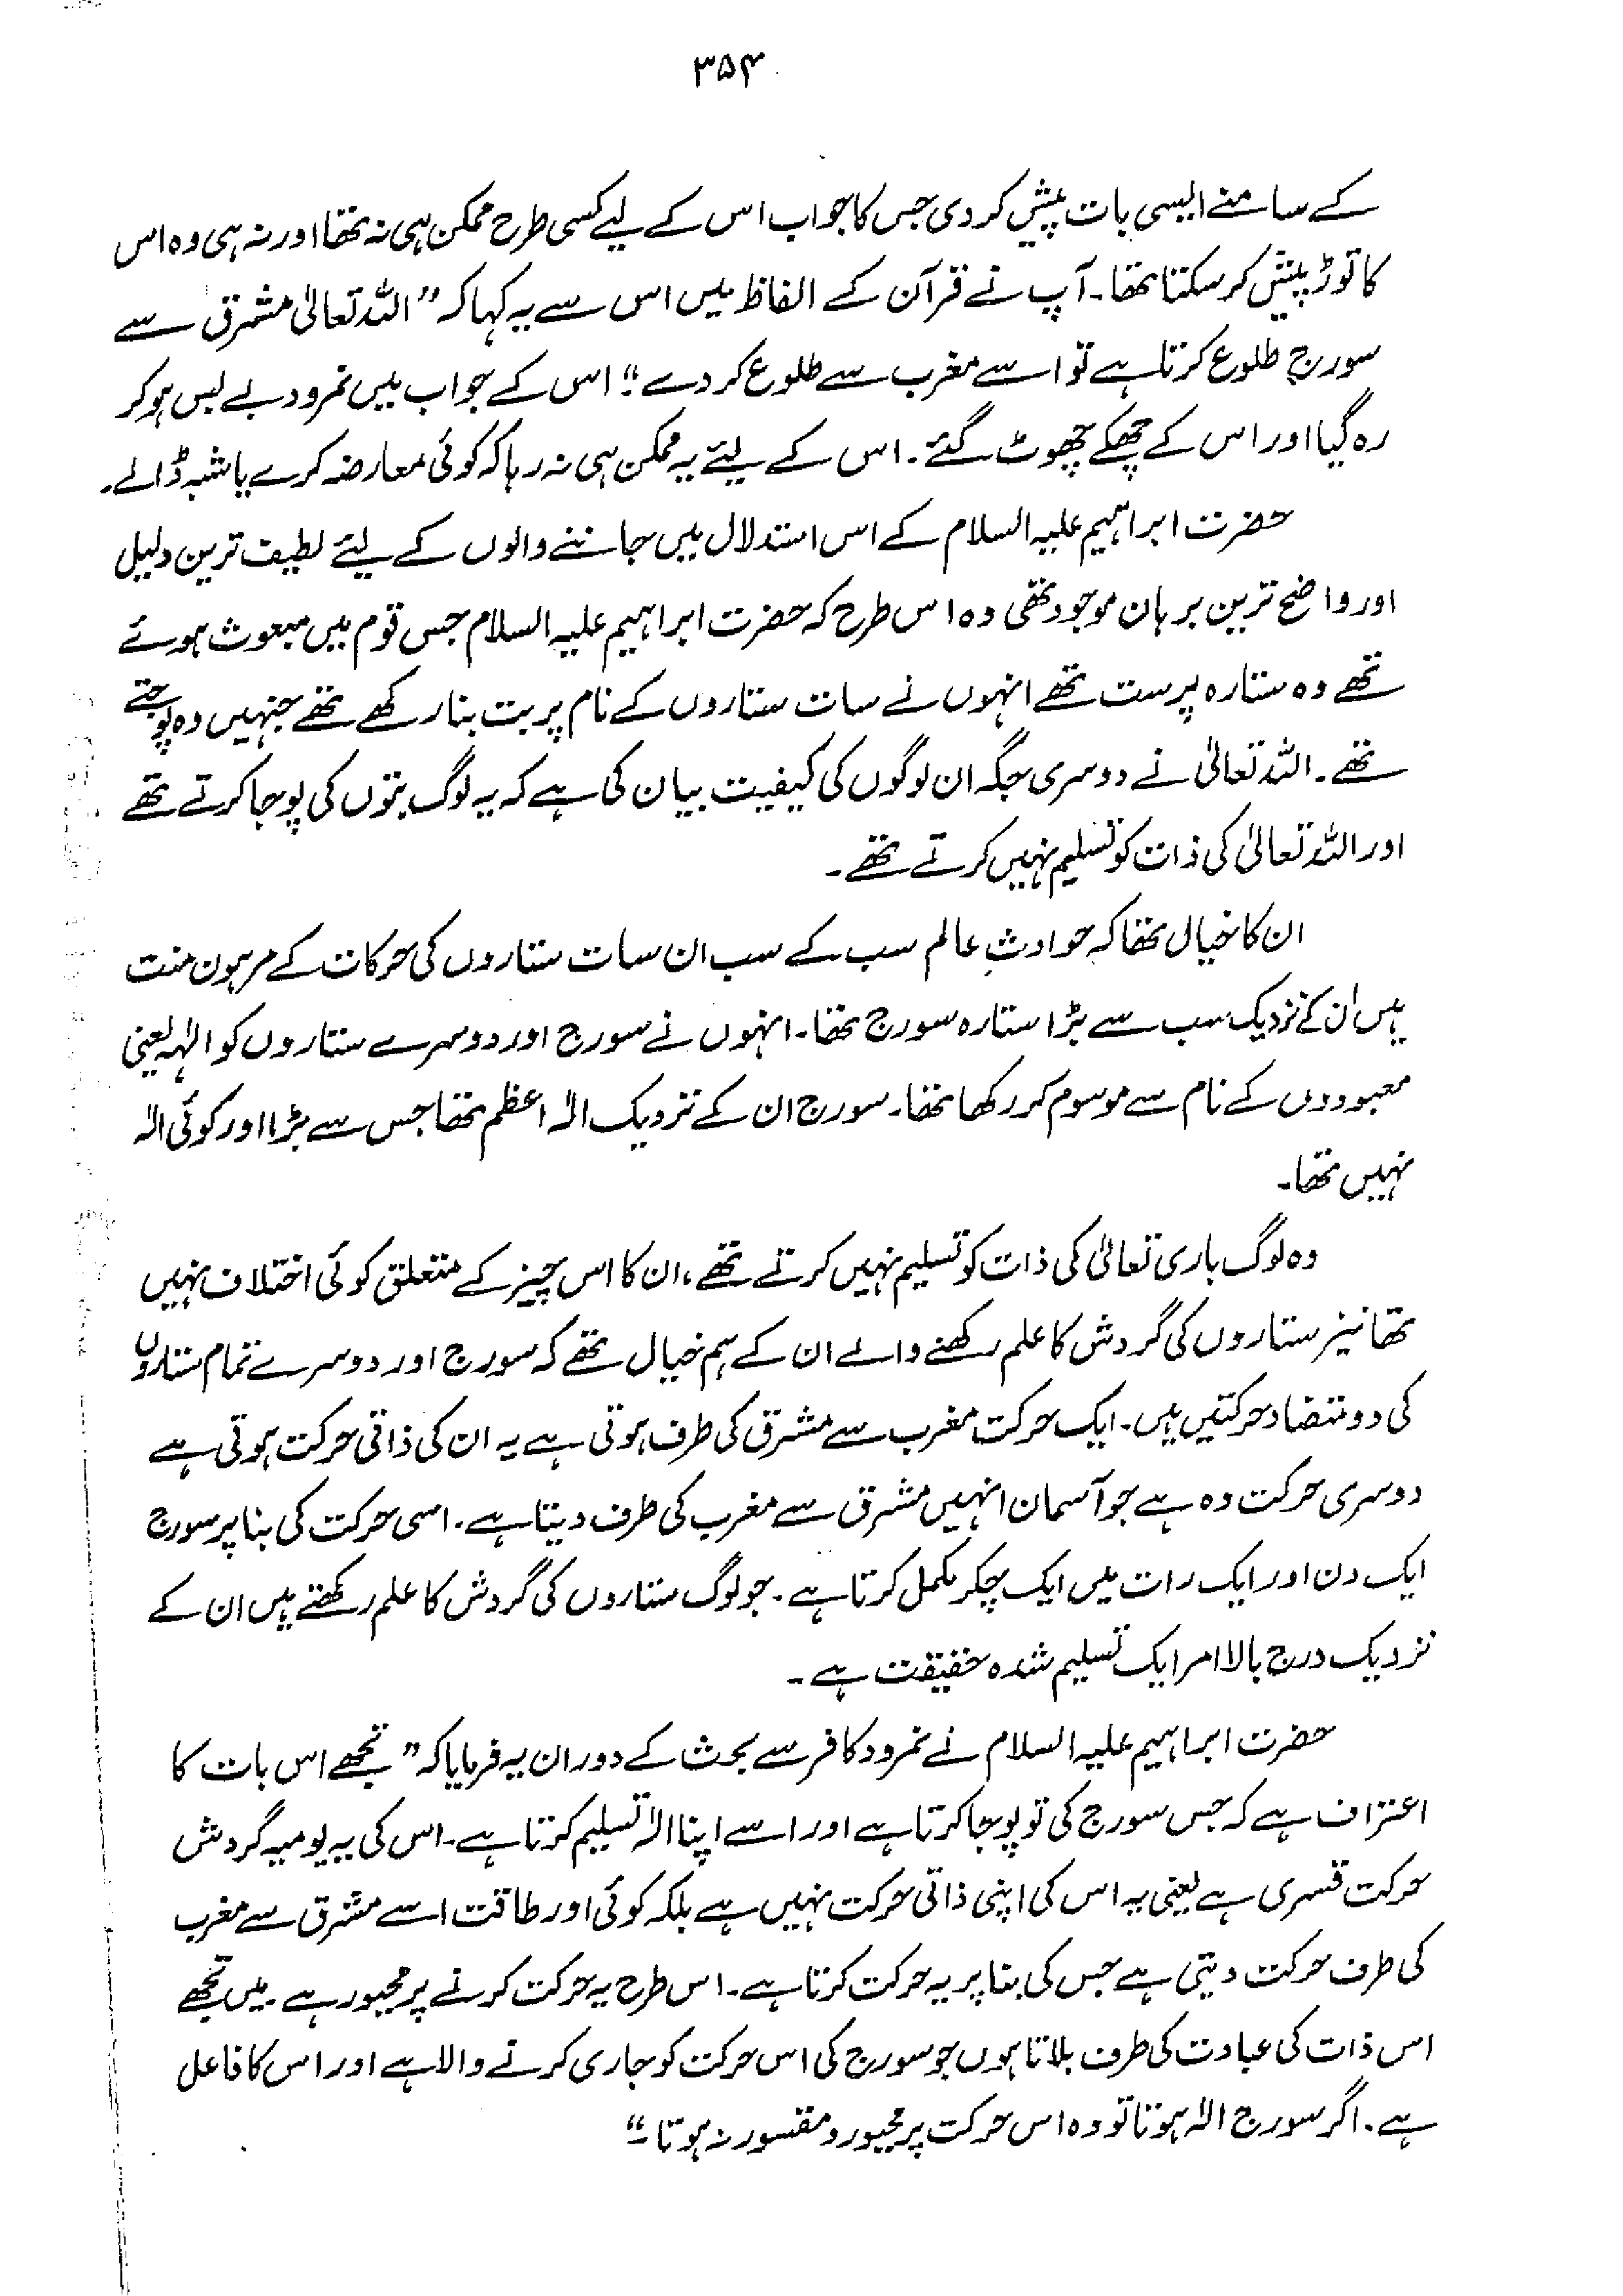 ۳۵۴
کے سامنے ایسی بات پیش کر دی جس کا جواب اس کے لیے کسی طرح ممکن ہی نہ تھا اور نہ ہی وہ اس
کا توڑ پیش کر سکتا تھا۔ آپ نے قرآن کے الفاظ میں اس سے یہ کہا کہ ”اللہ تعالیٰ مشرق سے
سورج طلوع کرتا ہے تو اسے مغرب سے طلوع کر دے“؛ اس کے جواب میں نمرود بے بس ہو کر
رہ گیا اور اس کے چھکے چھوٹ گئے۔ اس کے لیئے یہ ممکن ہی نہ رہا کہ کوئی معارضہ کرے یا شبہ ڈالے۔
حضرت ابراہیم علیہ السلام کے اس استدلال میں جاننے والوں کے لیئے لطیف ترین دلیل
اور واضح ترین برہان موجود تھی وہ اس طرح کہ حضرت ابراہیم علیہ السلام جس قوم میں مبعوث ہوئے
تھے وہ ستارہ پرست تھے انہوں نے سات ستاروں کے نام پر بت بنا رکھے تھے جنہیں وہ پوجتے
تھے۔ اللہ تعالیٰ نے دوسری جگہ ان لوگوں کی کیفیت بیان کی ہے کہ یہ لوگ بتوں کی پوجا کرتے تھے
اور اللہ تعالیٰ کی ذات کو تسلیم نہیں کرتے تھے۔
ان کا خیال تھا کہ حوادثِ عالم سب کے سب ان سات ستاروں کی حرکات کے مرہون منت
ہیں ان کے نزدیک سب سے بڑا ستارہ سورج تھا۔ انہوں نے سورج اور دوسرے ستاروں کو الٰہہ یعنی
معبودوں کے نام سے موسوم کر رکھا تھا۔ سورج ان کے نزدیک الٰہ اعظم تھا جس سے بڑا اور کوئی الٰہ
نہیں تھا۔
وہ لوگ باری تعالیٰ کی ذات کو تسلیم نہیں کرتے تھے، ان کا اس چیز کے متعلق کوئی اختلاف نہیں
تھا نیز ستاروں کی گردش کا علم رکھنے والے ان کے ہم خیال تھے کہ سورج اور دوسرے تمام ستاروں
کی دو متضاد حرکتیں ہیں۔ ایک حرکت مغرب سے مشرق کی طرف ہوتی ہے یہ ان کی ذاتی حرکت ہوتی ہے
دوسری حرکت وہ ہے جو آسمان انہیں مشرق سے مغرب کی طرف دیتا ہے۔ اسی حرکت کی بنا پر سورج
ایک دن اور ایک رات میں ایک چکر مکمل کرتا ہے۔ جو لوگ ستاروں کی گردش کا علم رکھتے ہیں ان کے
نزدیک درج بالا امر ایک تسلیم شدہ حقیقت ہے۔
حضرت ابراہیم علیہ السلام نے نمرود کافر سے بحث کے دوران یہ فرمایا کہ ”تجھے اس بات کا
اعتراف ہے کہ جس سورج کی تو پوجا کرتا ہے اور اسے اپنا الٰہ تسلیم کرتا ہے۔ اس کی یہ یومیہ گردش
حرکت قسری ہے یعنی یہ اس کی اپنی ذاتی حرکت نہیں ہے بلکہ کوئی اور طاقت اسے مشرق سے مغرب
کی طرف حرکت دیتی ہے جس کی بنا پر یہ حرکت کرتا ہے۔ اس طرح یہ حرکت کرنے پر مجبور ہے۔ میں تجھے
اس ذات کی عبادت کی طرف بلاتا ہوں جو سورج کی اس حرکت کو جاری کرنے والا ہے اور اس کا فاعل
ہے۔ اگر سورج الٰہ ہوتا تو وہ اس حرکت پر مجبور و مقسور نہ ہوتا۔“